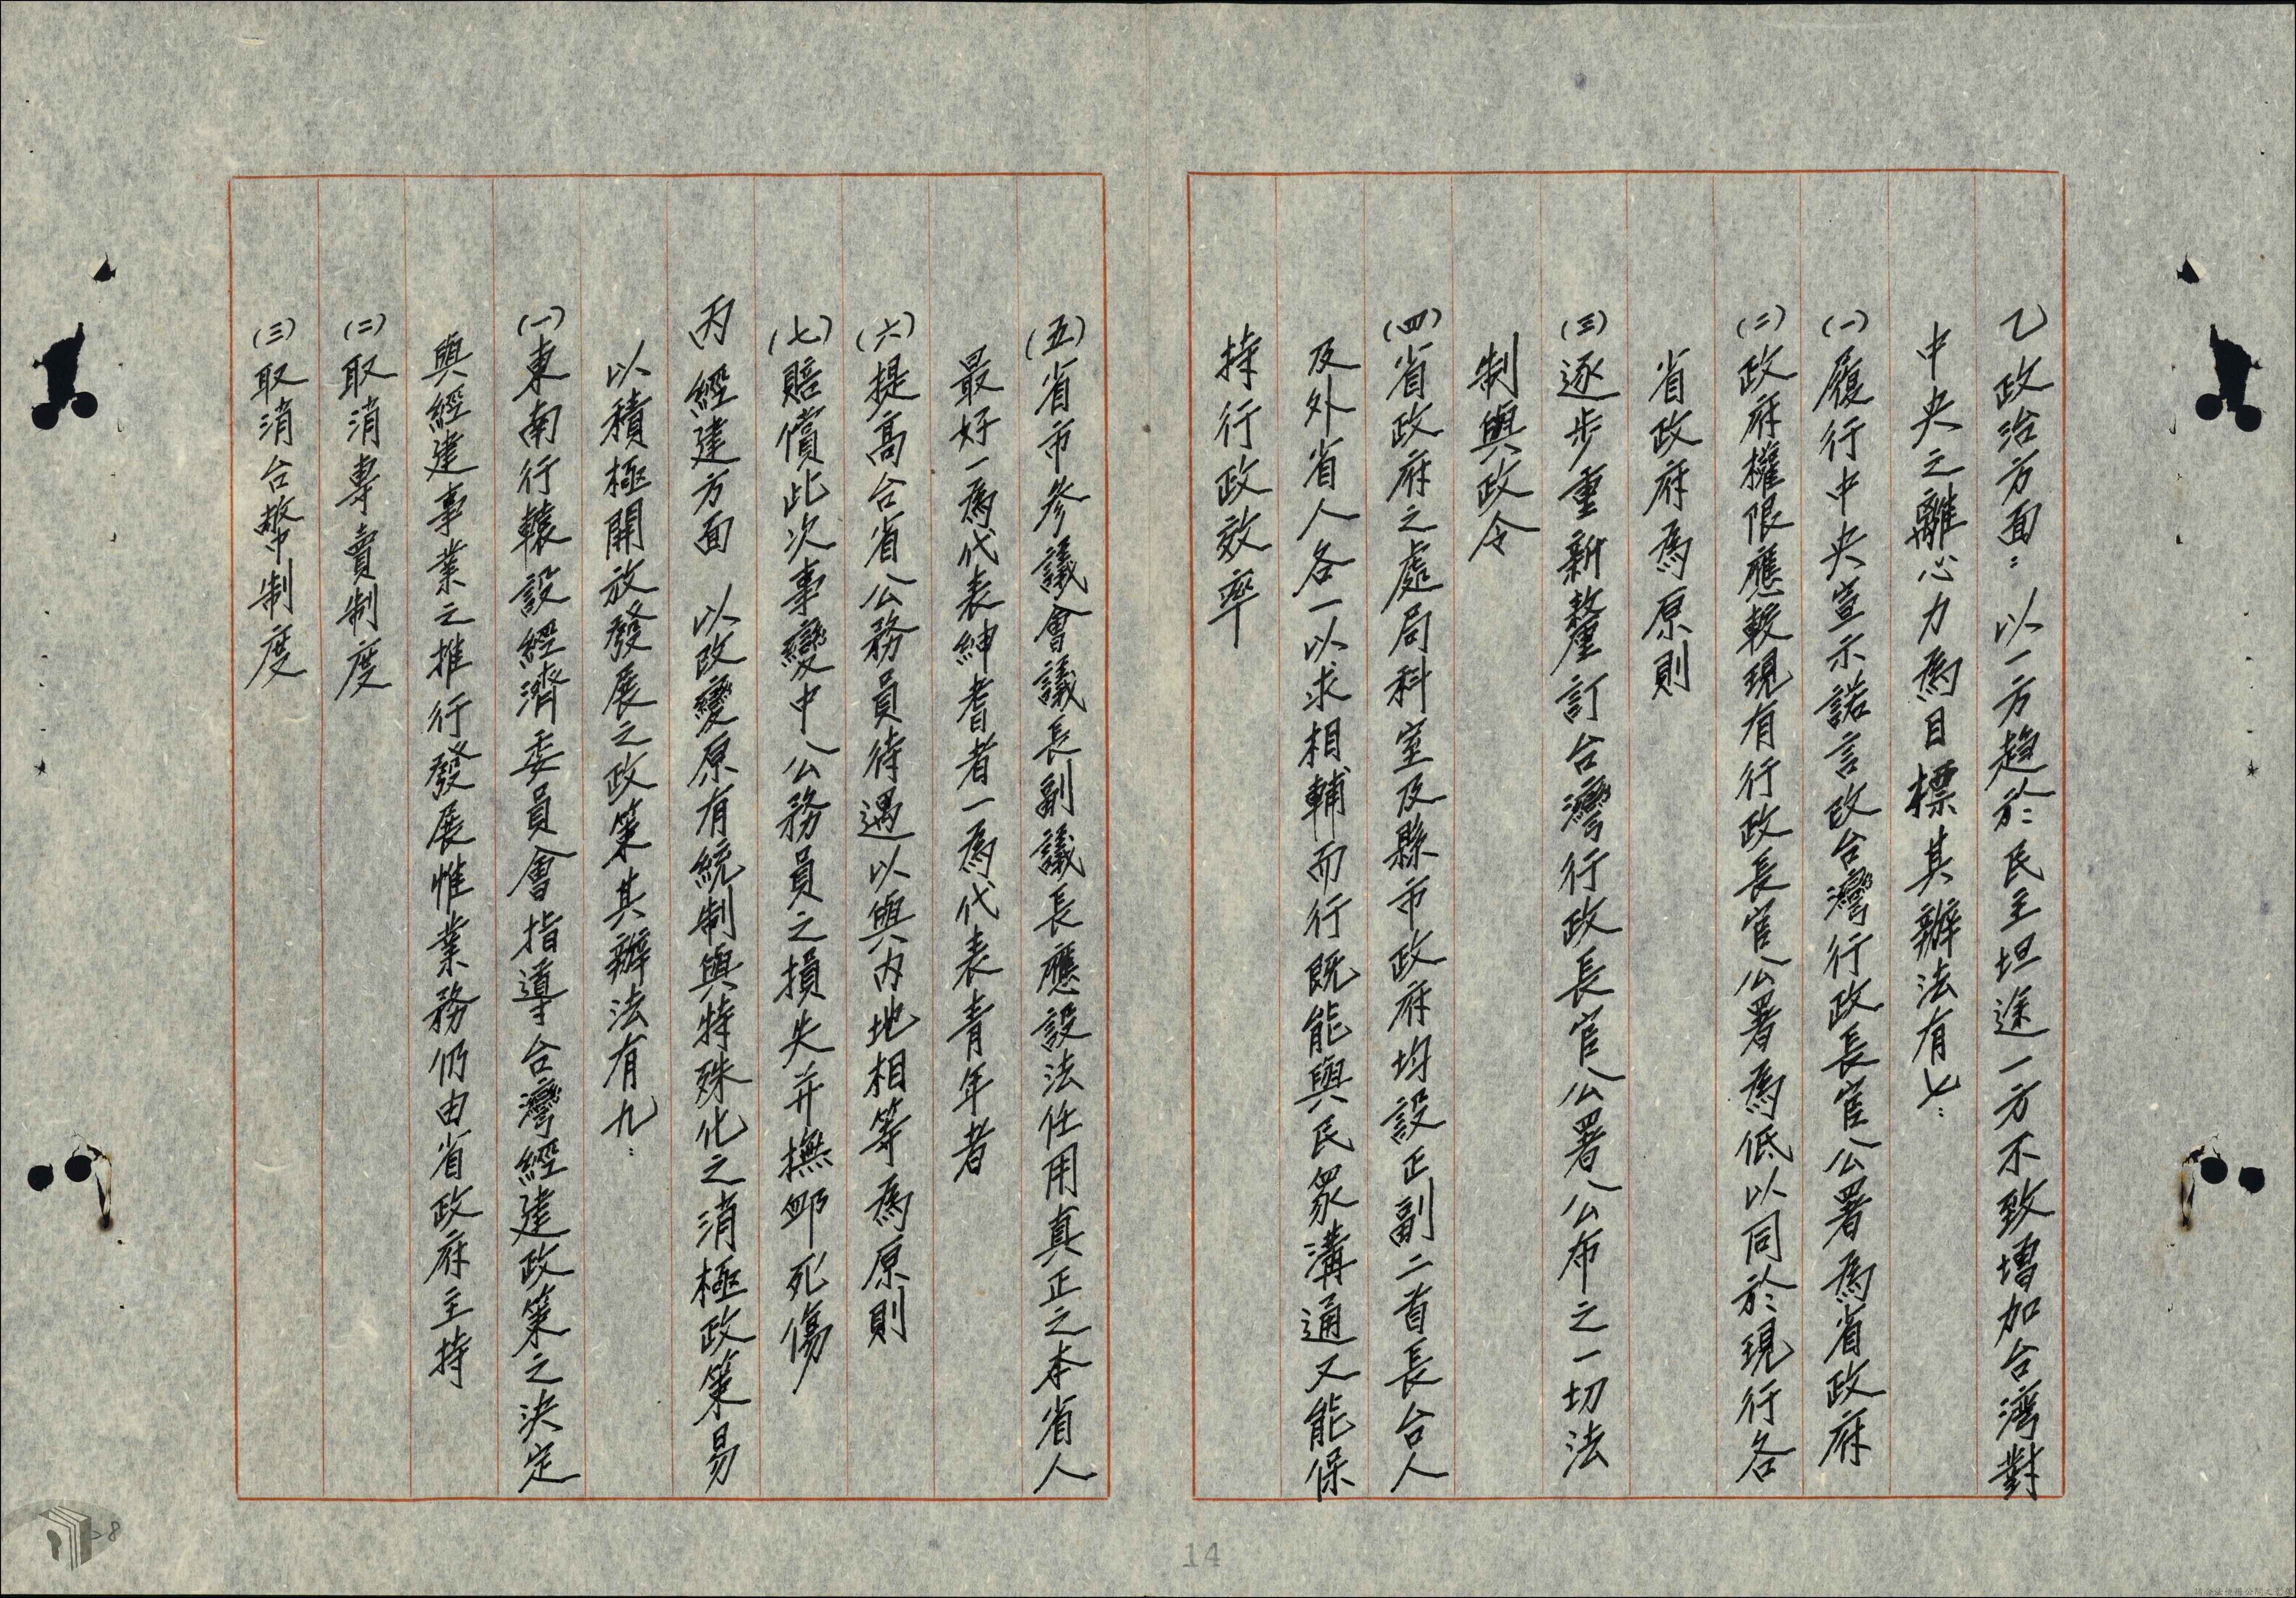 乙政治方面：以一方趨於民主坦途一方不致增加台灣對
中央之離心力為目標其辦法有七：
(一)履行中央宣示諾言改台灣行政長官公署為省政府
(二)政府權限應較現有行政長官公署為低以同於現行各
省政府為原則
(三)逐步重新釐訂台灣行政長官公署公布之一切法
制與政令
(四)省政府之處局科室及縣市政府均設正副二首長台人
及外省人各一以求相輔而行既能與民衆溝通又能保
持行政效率
(五)省市參議會議長副議長應設法任用真正之本省人
最好一為代表紳耆者一為代表青年者
(六)提高台省公務員待遇以與內地相等為原則
(七)賠償此次事變中公務員之損失并撫卹死傷
丙經建方面 以改變原有統制與特殊化之消極政策易
以積極開放發展之政策其辦法有九：
(一)東南行轅設經濟委員會指導台灣經建政策之決定
與經建事業之推行發展惟業務仍由省政府主持
(二)取消專賣制度
(三)取消台幣制度
14